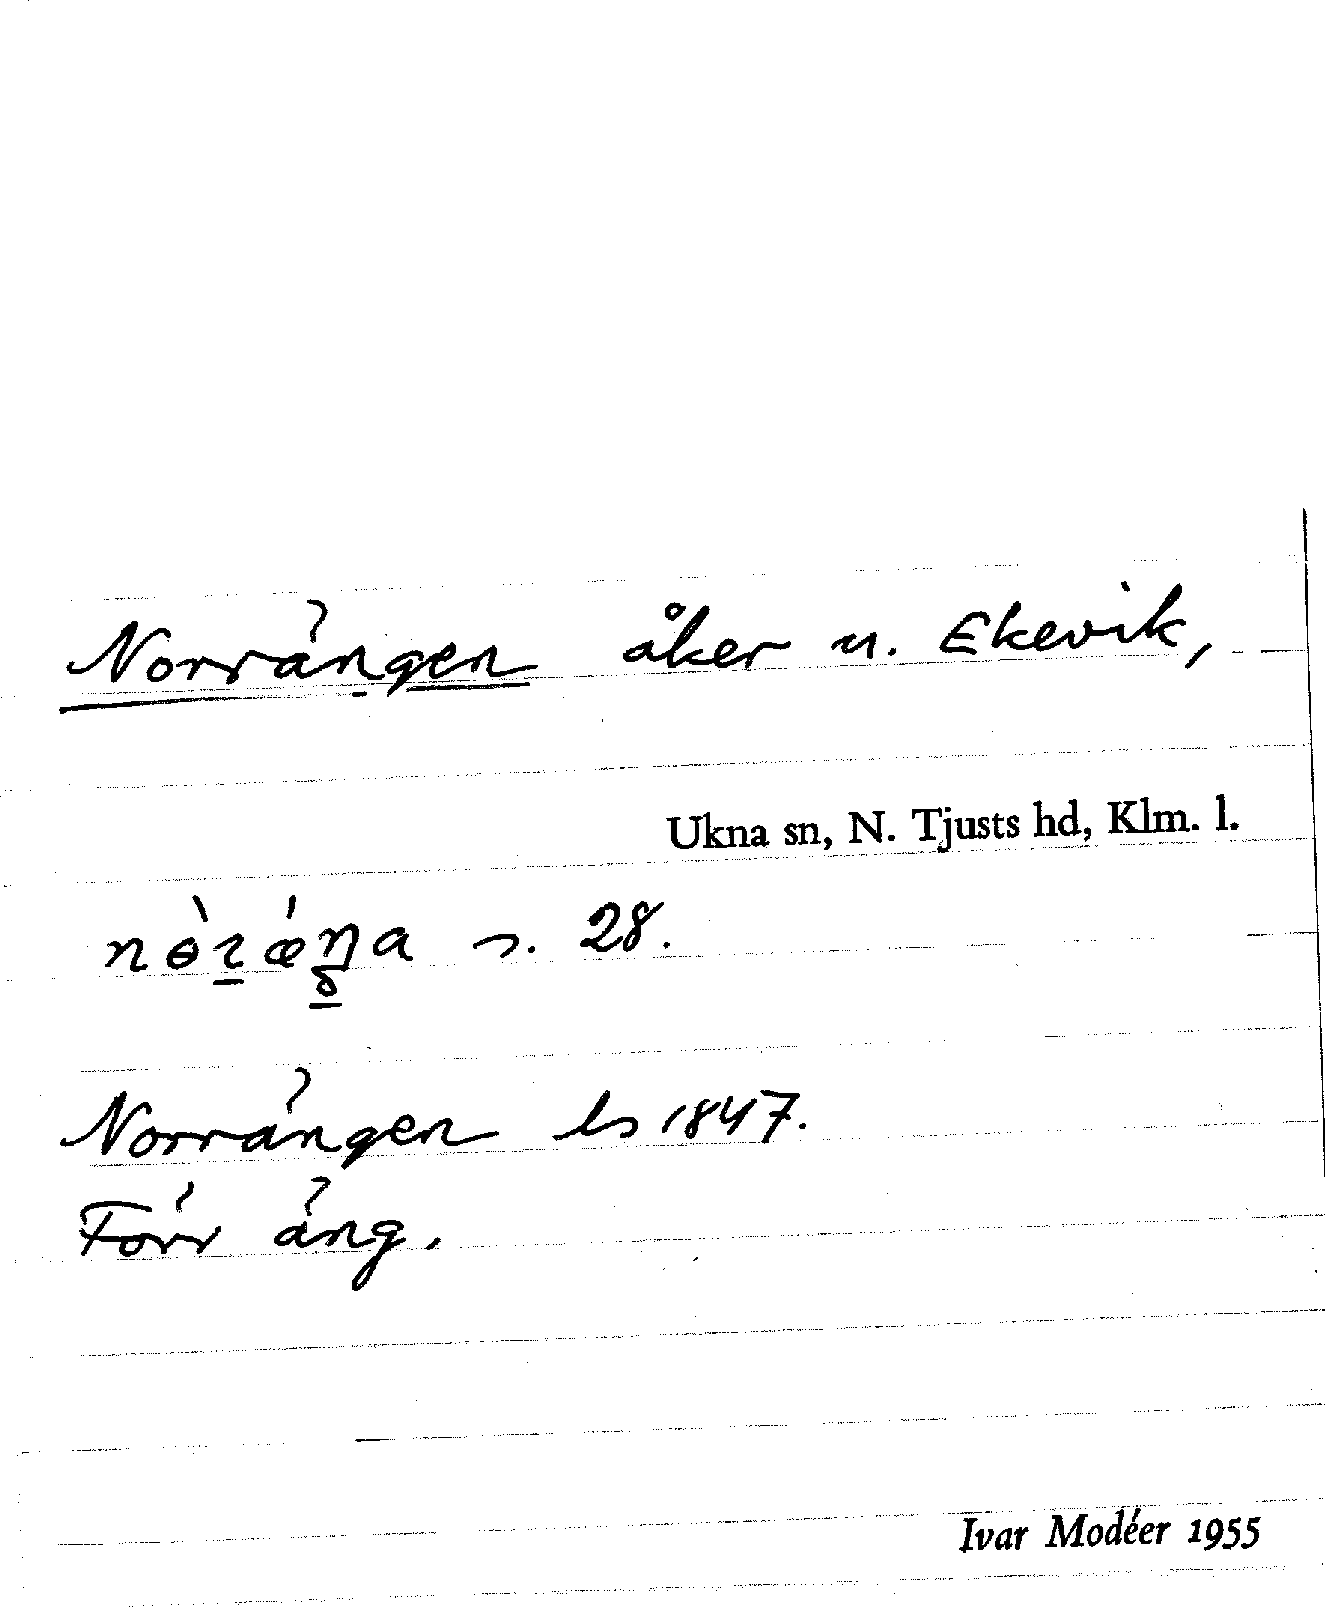 Norrängen åker u. Ekevik,
Ukna sn, N. Tjusts hd, Klm. l.
28.
Norrängen ls 1847.
Förr äng.
Ivar Modéer 1955